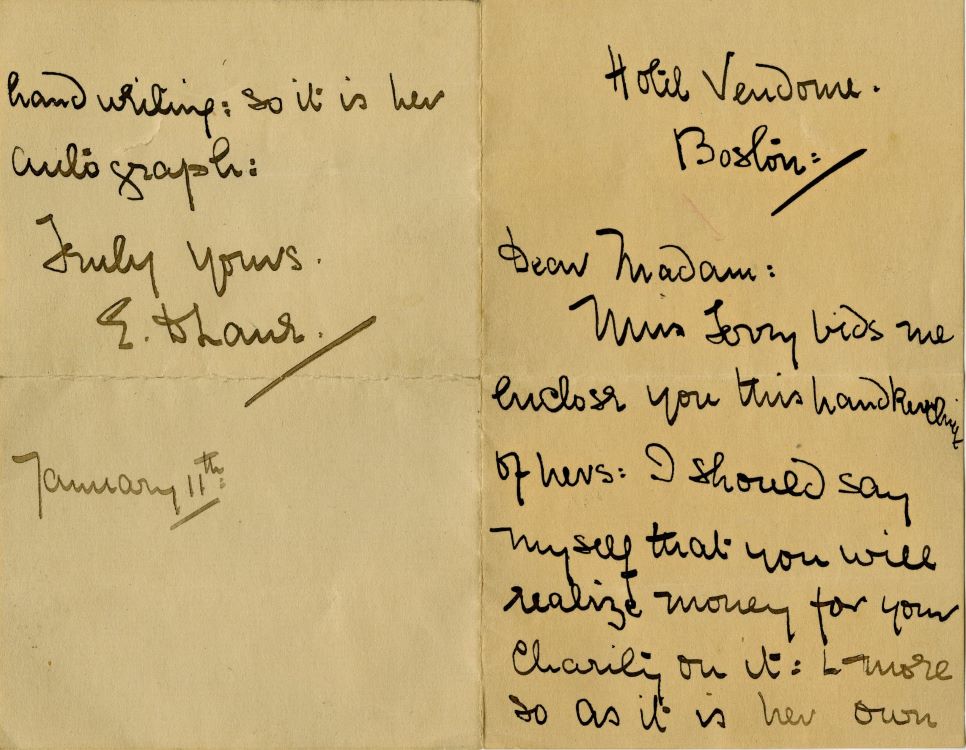 Hotel Vendome.
Boston:
Dear Madam:
Miss Terry bids me
enclose you this handkerchief
of hers: I should say
myself that you will
realize money for your
Charity on it: & more
so as it is her own
handwriting: so it is her
autograph:
Truly yours.
E.
January 11th: